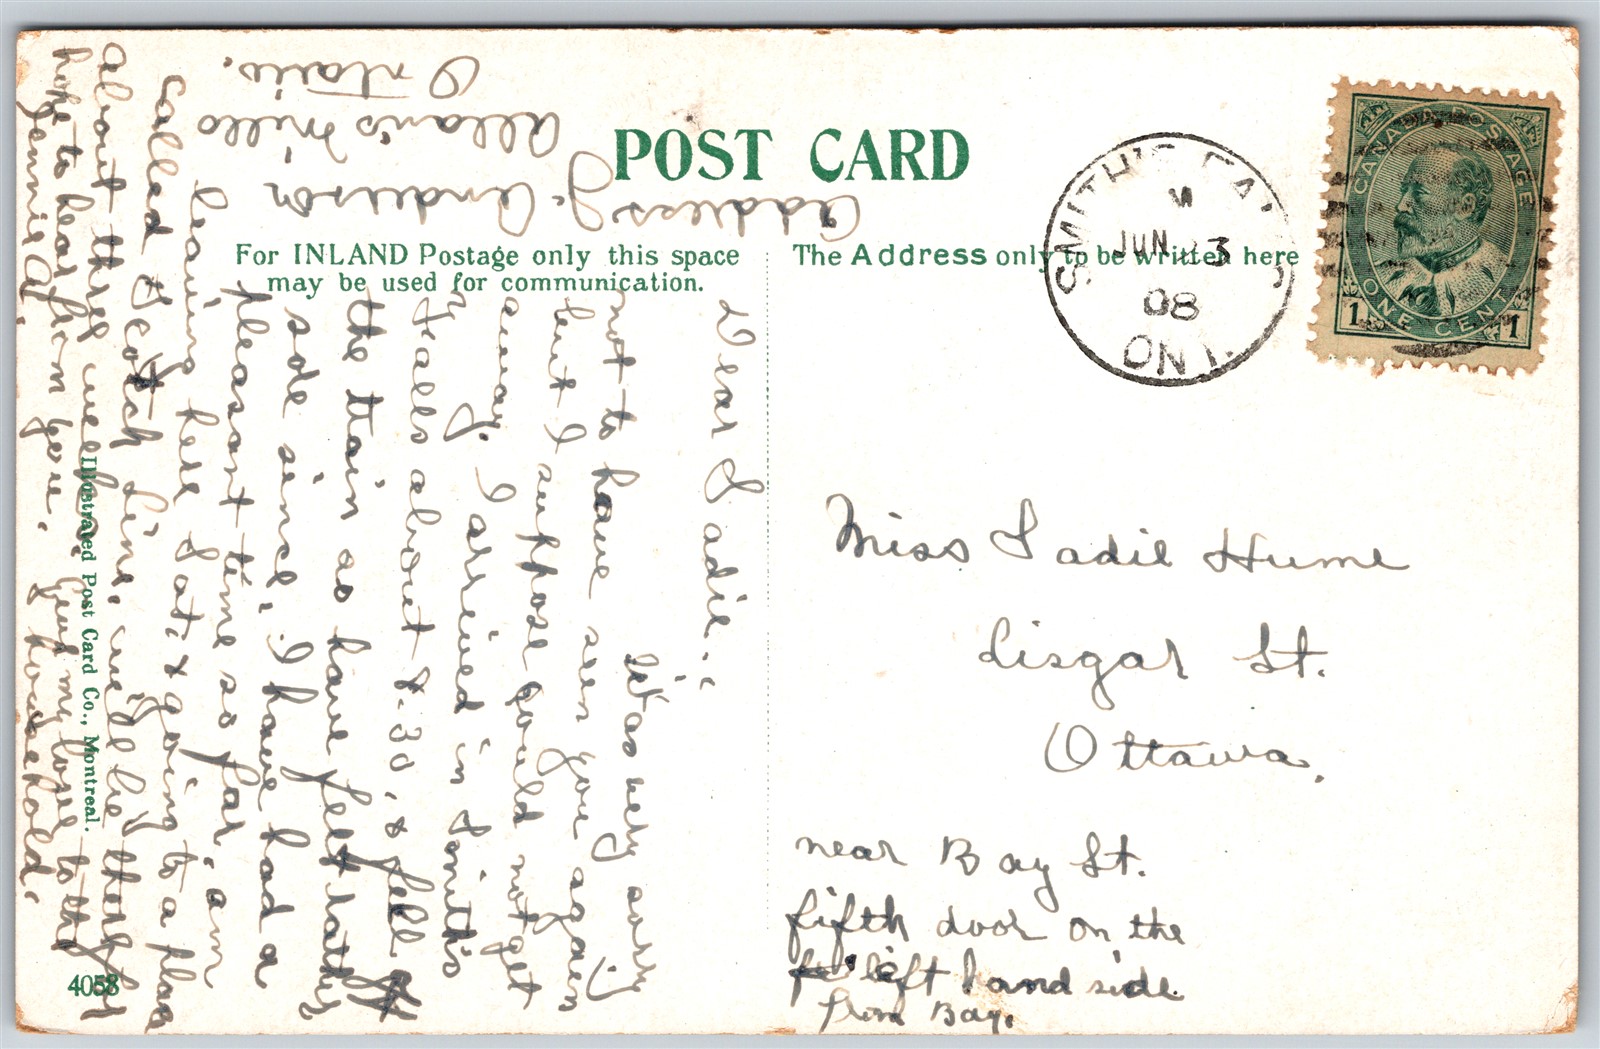 POST CARD
For INLAND Postage only this space
may be used for communication.
The Address only to be written here
SMITH'S FALLS
JUN 3
08
ONT.
CANADA POSTAGE
ONE CENT
1 1
Miss Sadie Hume
Lisgar St.
Ottawa,
near Bay St.
fifth door on the
left hand side
from Bay.
Dear Sadie:
It was very sorry
not to have seen you again,
but I suppose could not get
away. I arrived in Smith's
Falls about 8.30, & fell off
the train as have felt rather
side since. I have had a
pleasant time so far, am
leaving here Sat. & going to a place
called Scotch Line, will be there for
about three weeks. Give my love to the
hope to hear from you. household.
Jennie A.
Address J. Anderson
Allan's Mills
Ontario.
Illustrated Post Card Co., Montreal.
4058